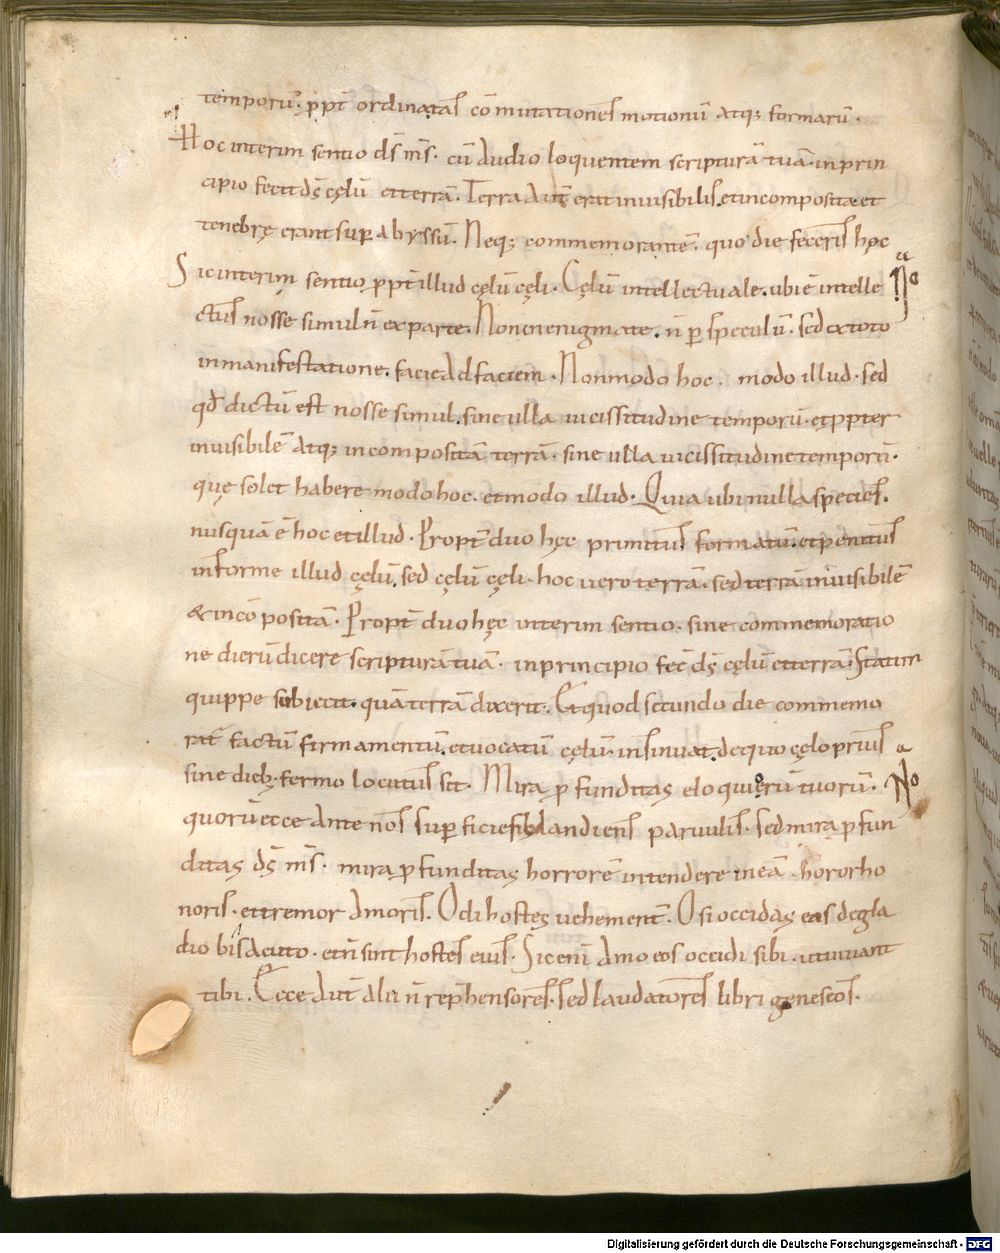 temporū· ꝓpt̄ ordinatas cōmutationes motionū atq; formarū·
Hoc interim sentio ds̄ ms̄· cū audio loquentem scripturā tuā· in prin
cipio fecit ds̄ cęlū et terrā· Terra aut̄ erat inuisibilis et incomposita et
tenebrę erant suꝑ abyssū· Neq; commemorantē· quo die feceris hęc
Sic interim sentio ꝓpt̄ illud cęlū cęli· Cęlū intellectuale· ubi ē intelle
ctus nosse simul n̄ ex parte· Non in enigmate· n̄ ꝑ speculū· sed ex toto
in manifestatione· facie ad faciem· Non modo hoc· modo illud· sed
qđ dictū est nosse simul· sine ulla uicissitudine temporū· et ꝓpter
inuisibilē atq; incompositā terrā· sine ulla uicissitudine temporū·
quę solet habere modo hoc· et modo illud· Quia ubi nulla species·
nusquā ē hoc et illud· Propt̄ duo hęc primitus formatū· et penitus
informe illud cęlū, sed cęlū cęli· hoc uero terrā· sed terrā inuisibilē
& incōpositā· Propt̄ duo hęc interim sentio· sine commemoratio
ne dierū dicere scripturā tuā· in principio fec̄ ds̄ cęlū et terrā· Statim
quippe subiecit· quā terrā dixerit· Et quod secundo die commemo
rat̄ factū firmamentū· et uocatū cęlū· insinuat· de quo cęlo prius
sine dieb; sermo locutus sit· Mira ꝓfunditas eloquiorū tuorū·
quorū ecce ante nos suꝑficies blandiens paruulis· sed mira ꝓfun
ditas ds̄ ms̄· mira ꝓfunditas horrorē intendere in eā· horor ho
noris· et tremor amoris· Odi hostes uehement̄· O si occidas eos de gla
dio bis acuto· et n̄ sint hostes eius· Sic enī amo eos occidi sibi· ut uiuant
tibi· Ecce aut̄ alii n̄ rep̄hensores· sed laudatores libri geneseos·
Digitalisierung gefördert durch die Deutsche Forschungsgemeinschaft - DFG